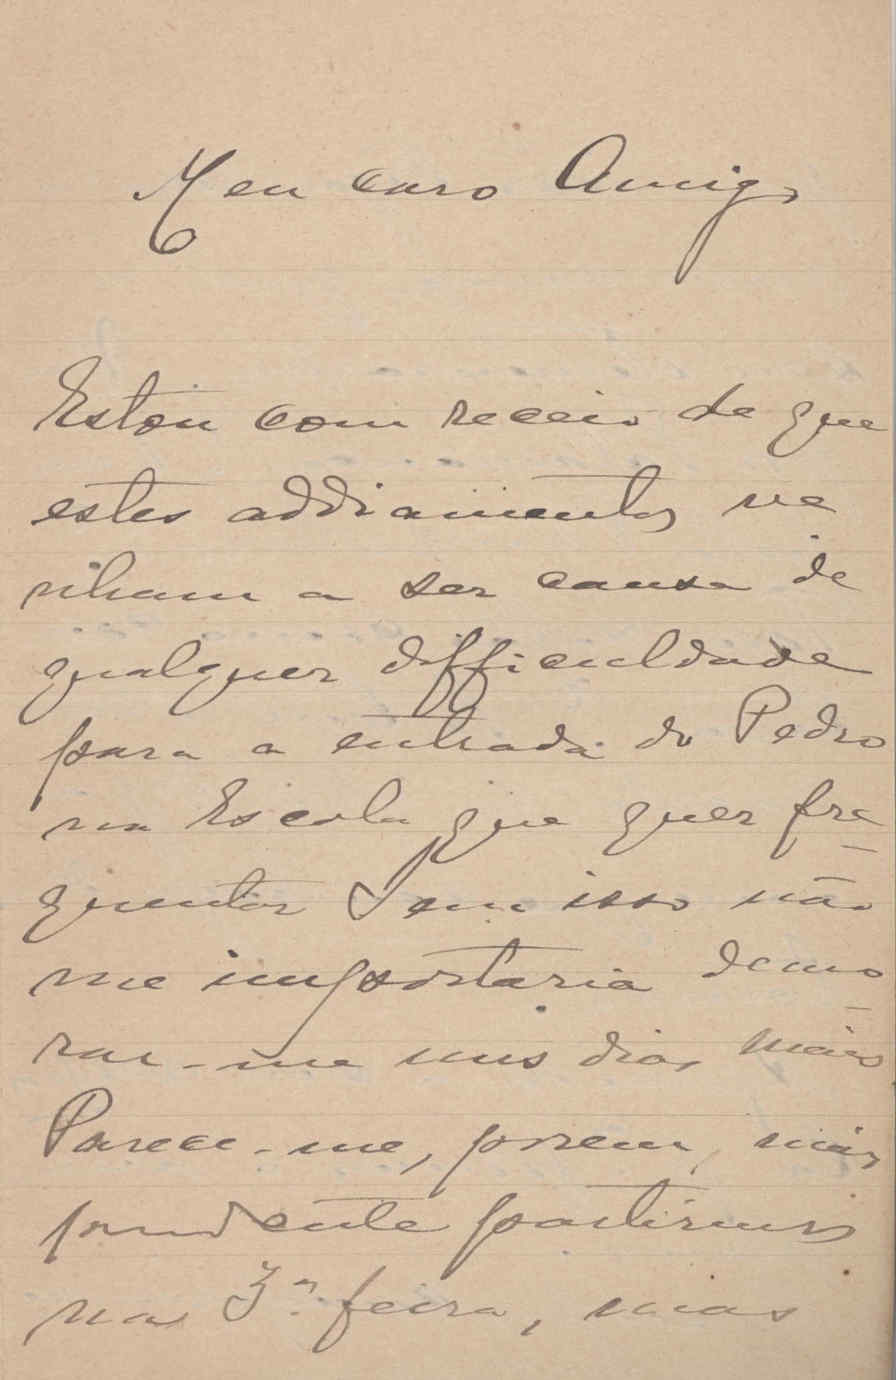 Meu caro Amigo
Estou com receio de que
estes addiamentos ve
nham a ser causa de
qualquer difficuldade
para a entrada do Pedro
na Escola que quer fre-
quentar Sem isso não
me importaria demo-
rar-me uns dias mais
Parece-me, porem, mais
prudente partirmos
na 3ª feira, mas